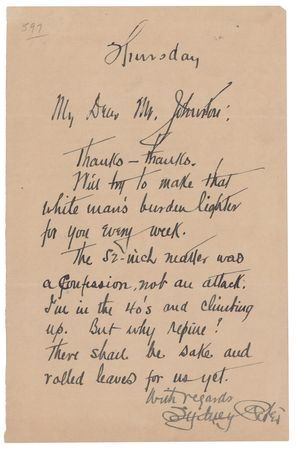 597
Thursday
My Dear Mr. Johnston:
Thanks—thanks.
Will try to make that
white man's burden lighter
for you every week.
The 52-inch matter was
a Confession, not an attack.
I'm in the 40's and climbing
up. But why repine?
There shall be sake and
rolled leaves for us yet.
With regards
Sydney Porter